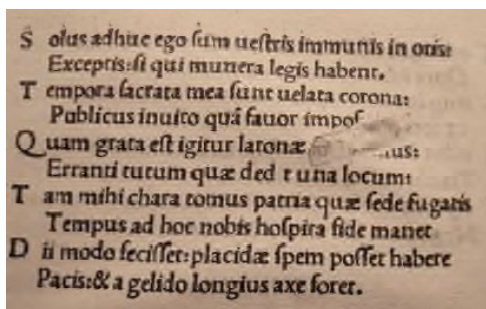 S olus adhuc ego sum uestris immunis in oris:
Exceptis: si qui munera legis habent.
T empora sacrata mea sunt uelata corona:
Publicus inuito quã fauor impos
Quam grata est igitur latonæ
Erranti tutum quæ ded una locum:
T am mihi chara tomus patria quæ sede fugatis
Tempus ad hoc nobis hospita fide manet
D ii modo fecissēt: placidæ spem posset habere
Pacis: & a gelido longius axe foret.